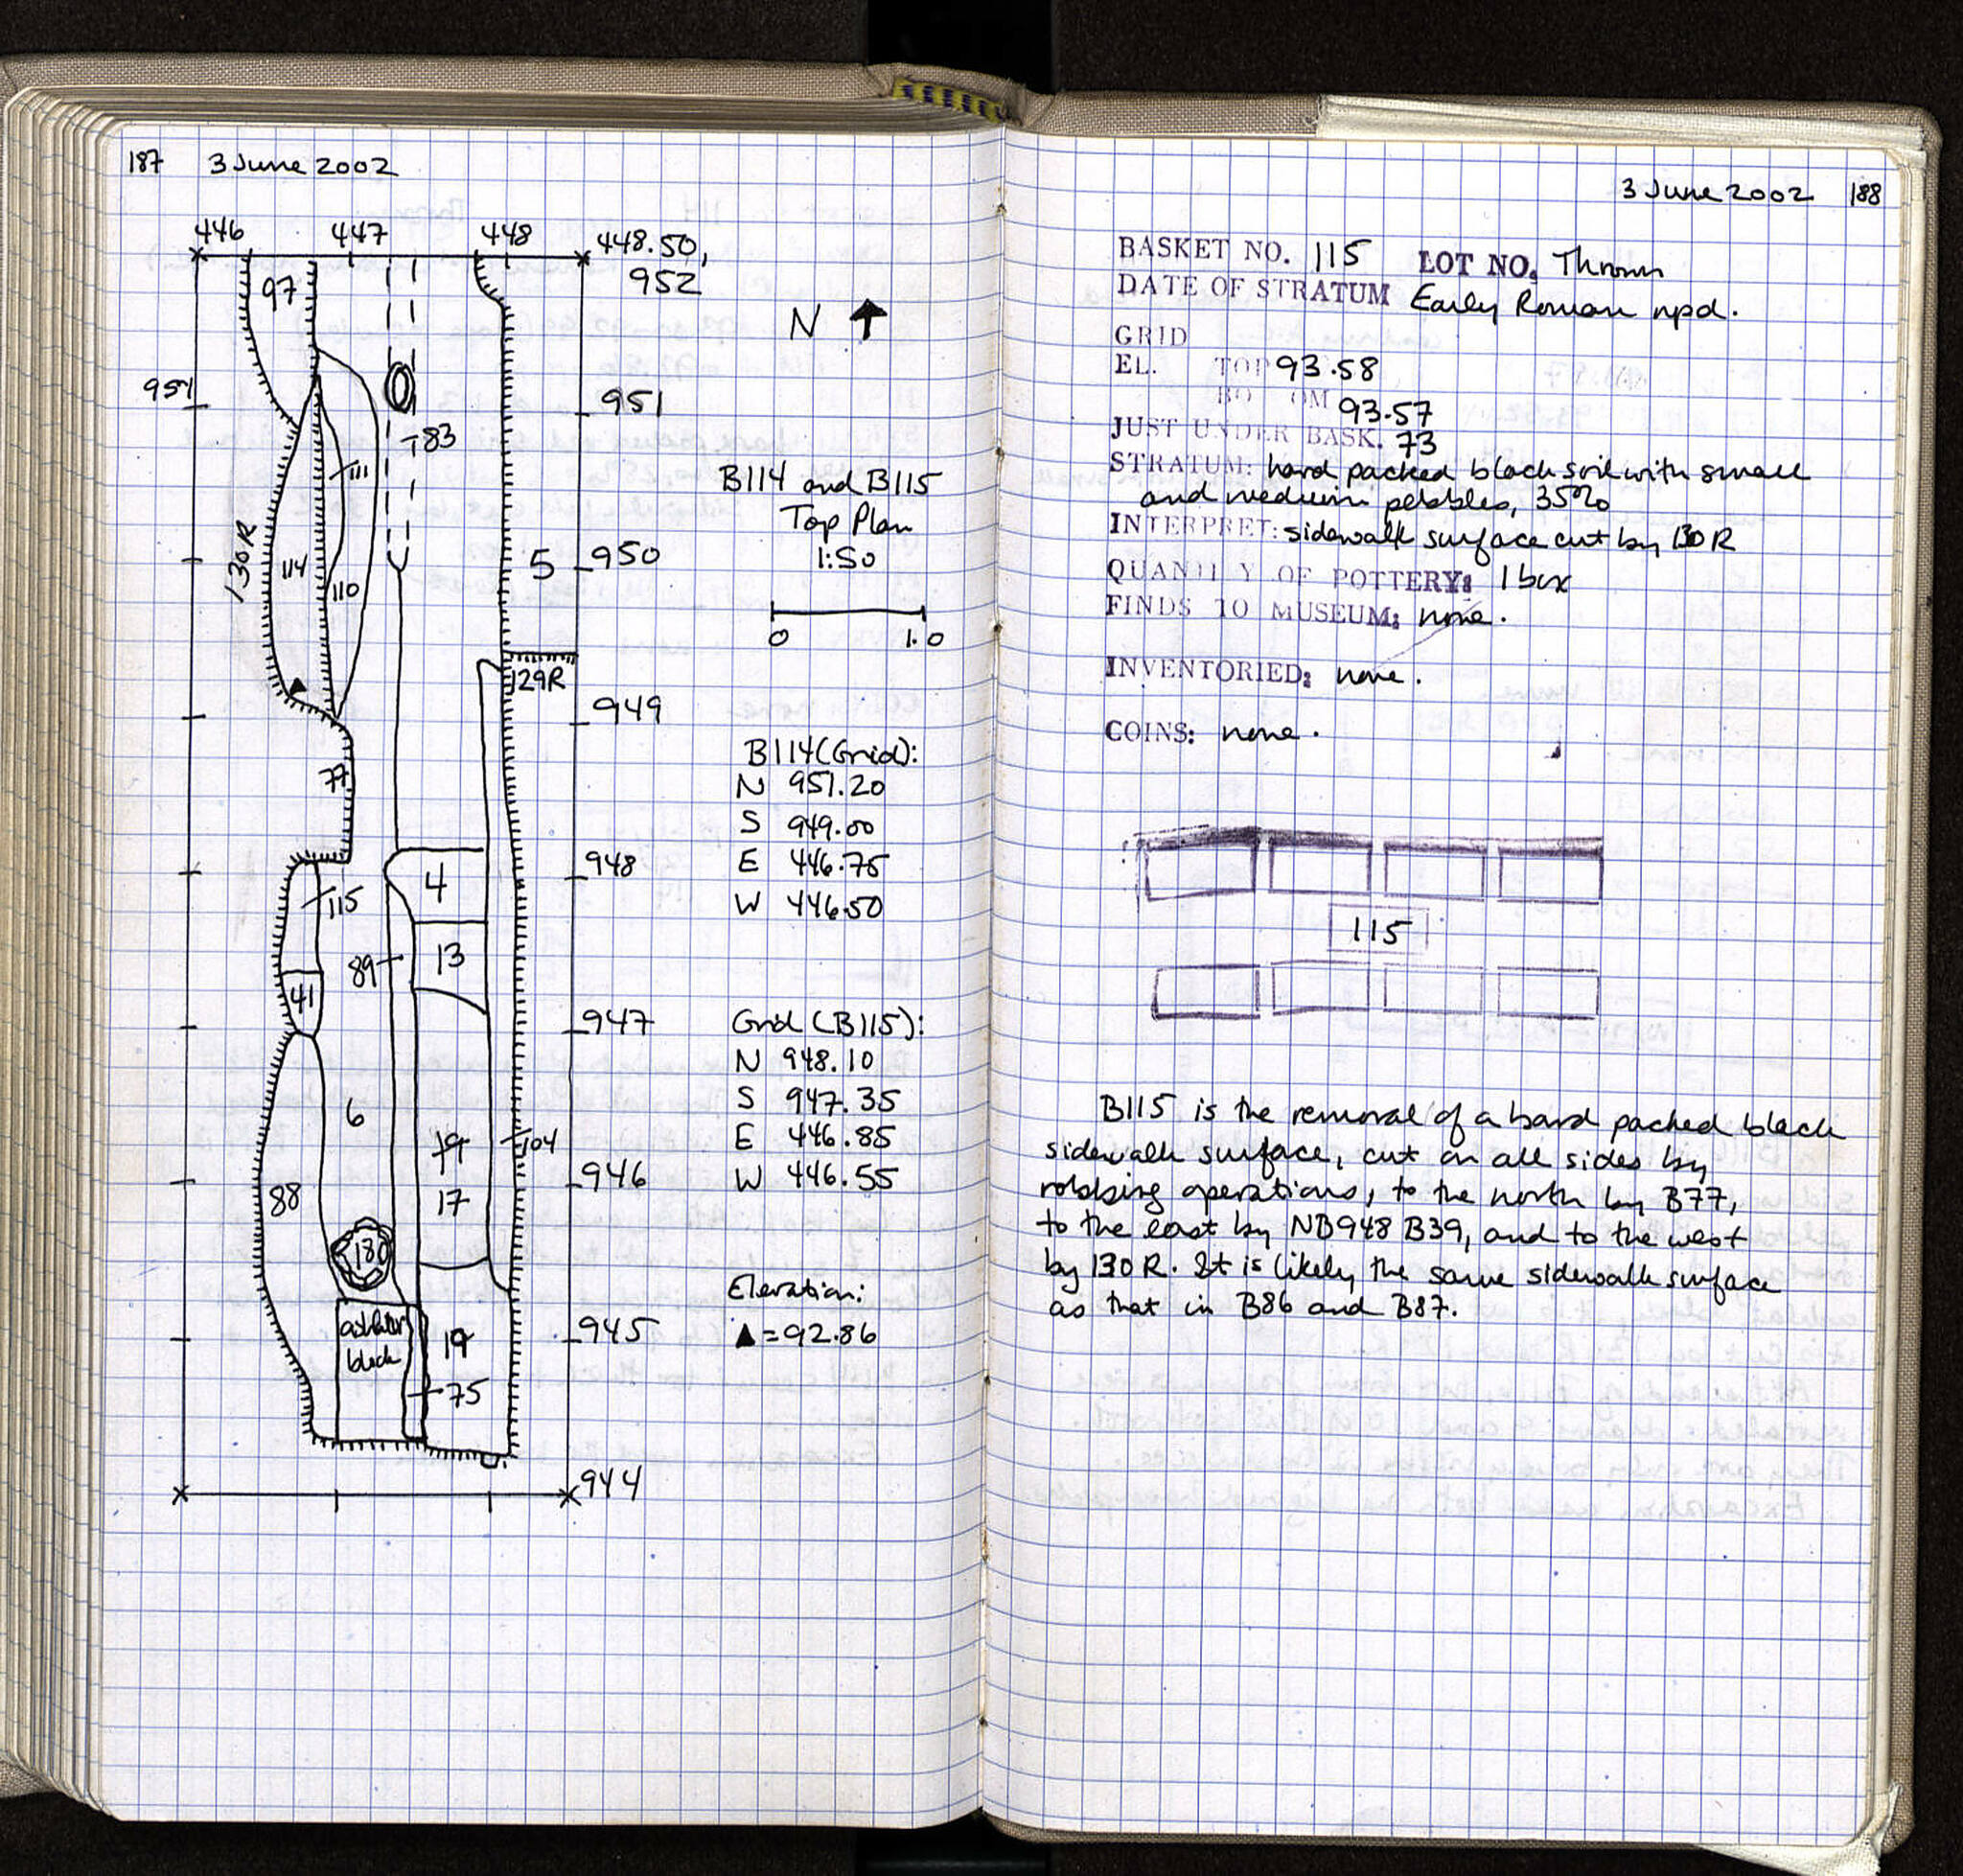 187 3 June 2002
446 447 448 448.50,
952
97
N
951 951
83
111
B114 and B115
Top Plan
130R 114 110 5 950 1:50
0 1.0
129R
949
77
B114 (Grid):
N 951.20
S 949.00
E 446.75
W 446.50
948
4
115
89 13
41
947
Grid (B115):
N 948.10
S 947.35
E 446.85
W 446.55
6
19 104
946
88 17
180
Elevation:
▲ = 92.86
ashlar
block
19 945
75
944
3 June 2002 188
BASKET NO. 115 LOT NO. Thrown
DATE OF STRATUM Early Roman npd.
GRID
EL. TOP 93.58
BO OM 93.57
JUST UNDER BASK. 73
STRATUM: hard packed black soil with small
and medium pebbles, 35%
INTERPRET: sidewalk surface cut by 130R
QUANTI Y OF POTTERY: 1 box
FINDS TO MUSEUM: none.
INVENTORIED: none.
COINS: none.
115
B115 is the removal of a hard packed black
sidewalk surface, cut on all sides by
robbing operations, to the north by B77,
to the east by NB948 B39, and to the west
by 130R. It is likely the same sidewalk surface
as that in B86 and B87.